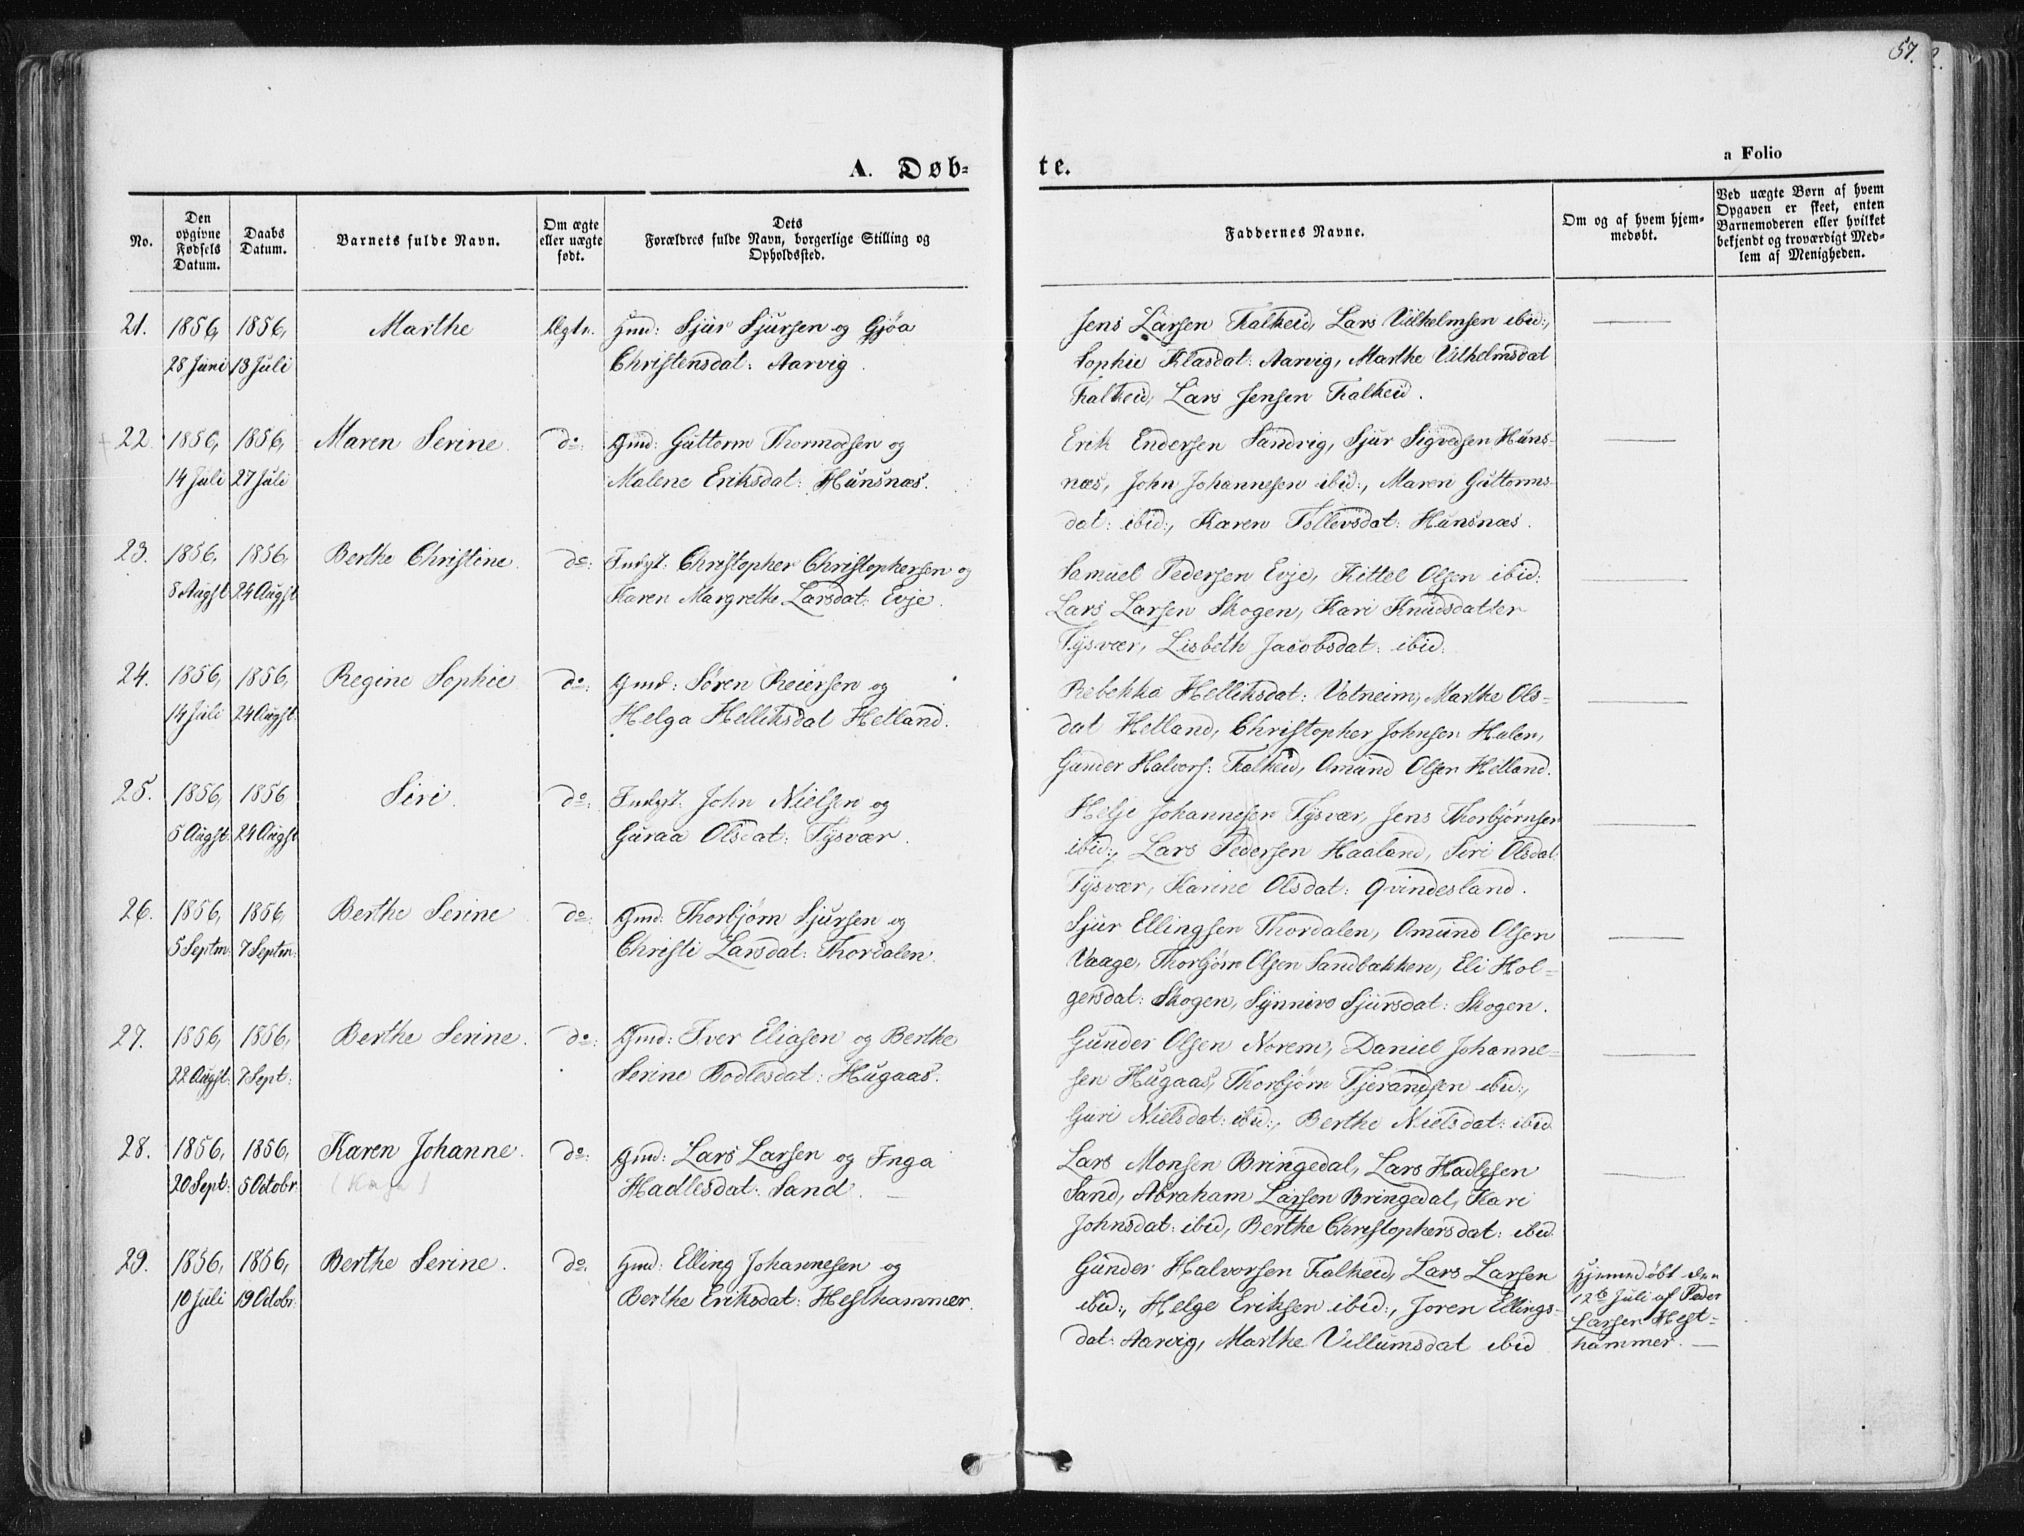 57.
A. Døb-
te.
a Folio
No.
Den opgivne Fødsels Datum.
Daabs Datum.
Barnets fulde Navn.
Om ægte eller uægte født.
Dets Forældres fulde Navn, borgerlige Stilling og Opholdssted.
Faddernes Navne.
Om og af hvem hjem-
medøbt.
Ved uægte Børn af hvem
Opgaven er skeet, enten
Barnemoderen eller hvilket
bekjendt og troværdigt Med-
lem af Menigheden.
21. 1856, 1856, Marthe Ægte. Gmd: Sjur Sjursen og Gjøa
28 Juni 13 Juli Christensdat: Aarvig.
Jens Larsen Falkeid, Lars Vilhelmsen ibid:,
Sophie Klasdat: Aarvig, Marthe Vilhelmsdat
Falkeid, Lars Jensen Falkeid.
22. 1856, 1856, Maren Serine. do: Gmd: Guttorm Thormodsen og
14 Juli 27 Juli Malene Eriksdat: Hunsnæs.
Erik Endersen Sandvig, Sjur Sigvedsen Huns-
næs, John Johannesen ibid:, Maren Guttorms-
dat: ibid:, Karen Tollevsdat: Hunsnæs.
23. 1856, 1856, Berthe Christine. do: Indgt: Christopher Christophersen og
8 Augst 24 Augst Karen Margrethe Larsdat: Evje.
Samuel Pedersen Evje, Kittel Olsen ibid:
Lars Larsen Skogen, Kari Knudsdatter
Tysvær, Lisbeth Jacobsdat: ibid:
24. 1856, 1856, Regine Sophie. do: Gmd: Søren Reiersen og
14 Juli 24 Augst: Helga Helliksdat Hetland.
Rebekka Helliksdat: Vatneim, Marthe Ols-
dat Hetland, Christopher Johnsen Hulen,
Gunder Halvors: Falkeid, Omund Olsen Hetland.
25. 1856, 1856 Siri. do: Indgt: John Nielsen og
5 Augst: 24 Augst Guraa Olsdat: Tysvær.
Helje Johannesen Tysvær, Jens Thorbjørnsen
ibid:, Lars Pedersen Haaland, Siri Olsdat:
Tysvær, Karine Olsdat: Qvindesland.
26. 1856, 1856 Berthe Serine do: Gmd: Thorbjørn Sjursen og
5 Septm: 7 Septm: Christi Larsdat: Thordalen.
Sjur Ellingsen Thordalen, Omund Olsen
Vaage, Thorbjørn Olsen Sandbækken, Eli Hol-
gersdat: Skogen, Synnive Sjursdat: Skogen.
27. 1856, 1856, Berthe Serine. do: Gmd: Iver Eliasen og Berthe
22 Augst: 7 Sept: Serine Bodlesdat: Hugaas.
Gunder Olsen Norem, Daniel Johanne-
sen Hugaas, Thorbjørn Tjerandsen ibid:,
Guri Nielsdat: ibid:, Berthe Nielsdat: ibid
28. 1856, 1856, Karen Johanne. do: Gmd: Lars Larsen og Inga
20 Sept: 5 Octobr: Hadlesdat: Sand.
Lars Monsen Bringedal, Lars Hadlesen
Sand, Abraham Larsen Bringedal, Kari
Johnsdat: ibid, Berthe Christophersdat: ibid.
29. 1856, 1856, Berthe Serine. do. Gmd: Elling Johannesen og
10 Juli 19 Octobr: Berthe Eriksdat: Hesthammer.
Gunder Halvorsen Falkeid, Lars Larsen
ibid:, Helge Eriksen ibid:, Joren Ellings-
dat: Aarvig, Marthe Villumsdat ibid
Hjemmedøbt den
12te Juli af Peder
Larsen Hest-
hammer.